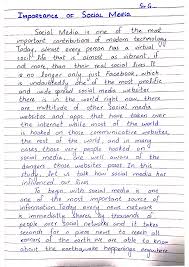 Importance of Social Media
Social Media is one of the most
important contributions of modern technology
Today, almost every person has a virtual
social life that is almost as vibrant, if
not more than their real social lives. It
is no longer only just Facebook, which
is undoubtedly one of the most prolific
and wide spread social media websites
there is in the world right now. there
are multitude of other social media
websites and apps that have taken over
the internet altogether. most of the world
is hooked on those communicative websites,
the rest of the world, and in many
cases, those very people hooked on
social media, are well aware of the
dangers those websites pose. In this
study, let us talk how social media has
influenced our lives.
To begin with social media is one
one of the most important source of
information. Today every news network
is immediately shares by thousands of
people over Social networks and it takes
seconds for a new news to reach all
corners of the earth we are able to know
about the earthquake happenings anywhere